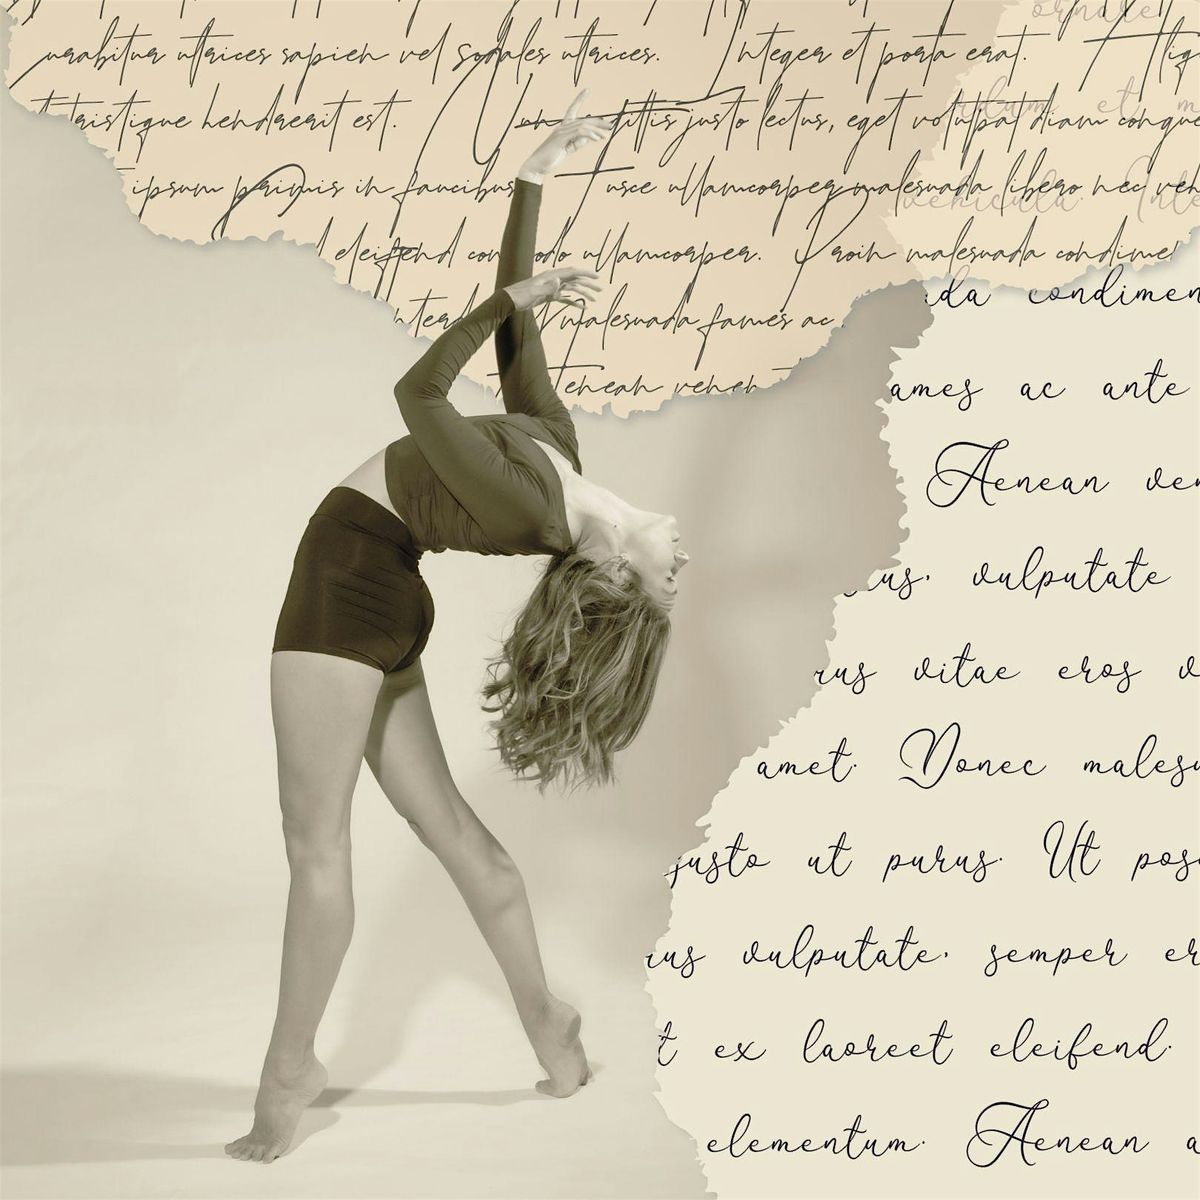 ornare
urabitur ultrices sapien vel sodales ultrices. Integer et porta erat. Aliq
tristique hendrerit est. Nun sagittis justo lectus, eget volutpat diam congue
et m
ipsum primis in faucibus Fusce ullamcorper malesuada libero nec veh
vehicula. Inte
eleifend com odo ullamcorper. Proin malesuada condime
da condimen
nterd malesuada fames ac
Aenean venen
ames ac ante
Aenean ven
us, vulputate
rus vitae eros v
amet. Donec malesu
justo ut purus. Ut posu
rus vulputate, semper er
t ex laoreet eleifend.
elementum. Aenean a